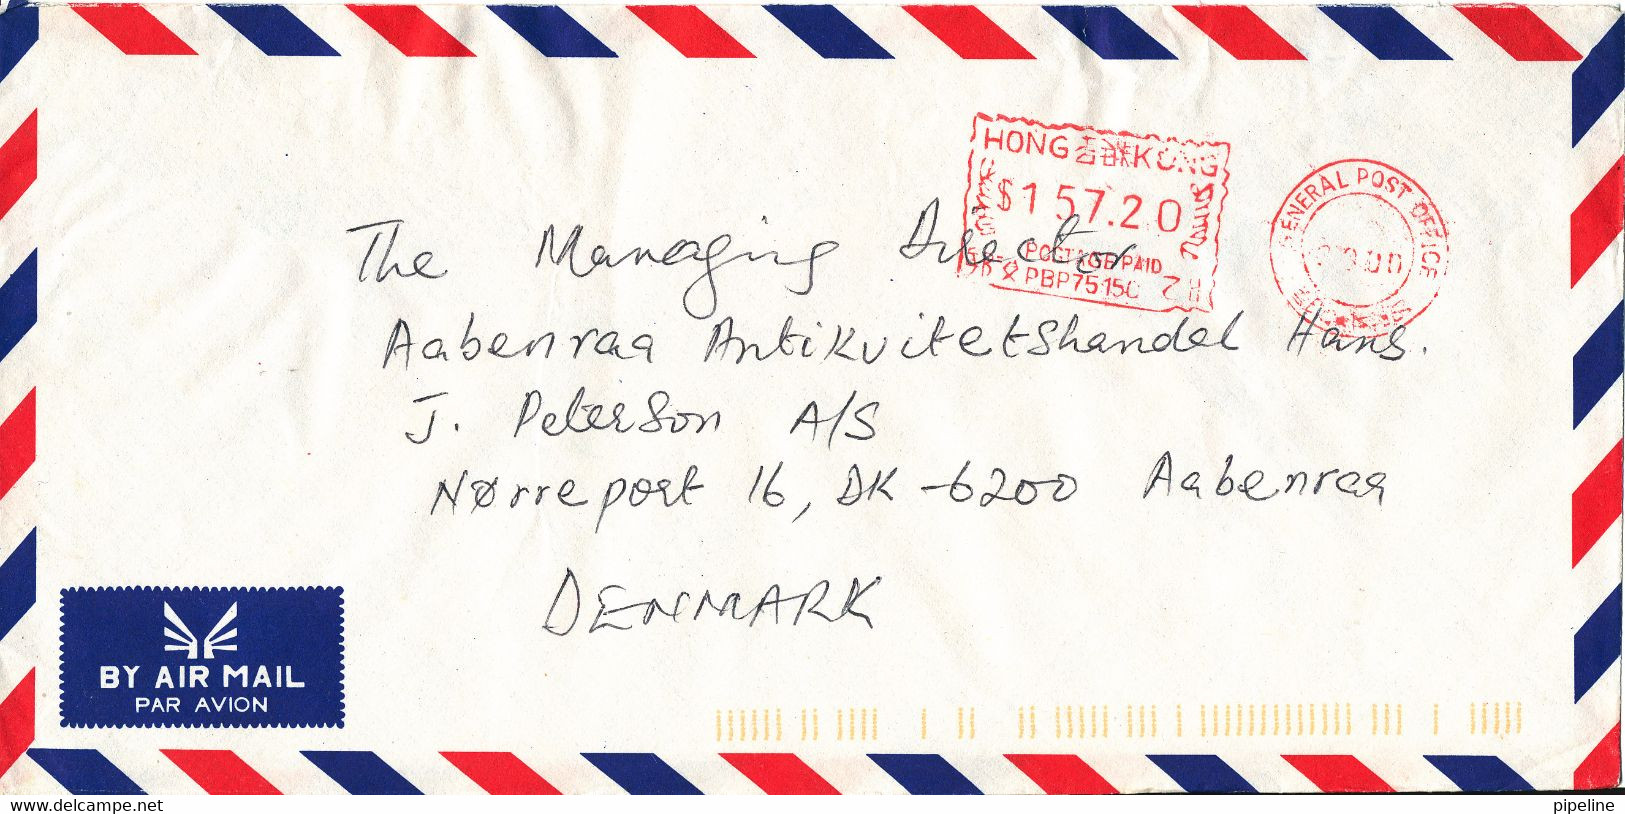 HONG KONG
$157.20
POSTAGE PAID
PBP75150
GENERAL POST OFFICE
The Managing Director
Aabenraa Antikvitetshandel Hans.
J. Peterson A/S
Nørreport 16, DK-6200 Aabenraa
DENMARK
BY AIR MAIL
PAR AVION
www.delcampe.net
pipeline